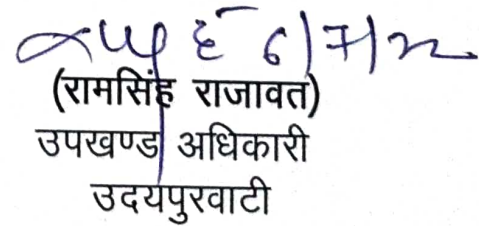 6/7/22
(रामसिंह राजावत)
उपखण्ड अधिकारी
उदयपुरवाटी